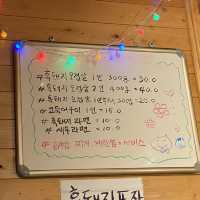 #흑돼지 오겹살 1인 300g = 30.0
#흑돼지 오겹살 2인 400g = 40.0
#흑돼지 오겹살 1인 추가 200g = 20.0
#고등어구이 1인 = 15.0
#흑돼지 라면 = 10.0
#해물라면 = 10.0
서비스
흑돼지포차